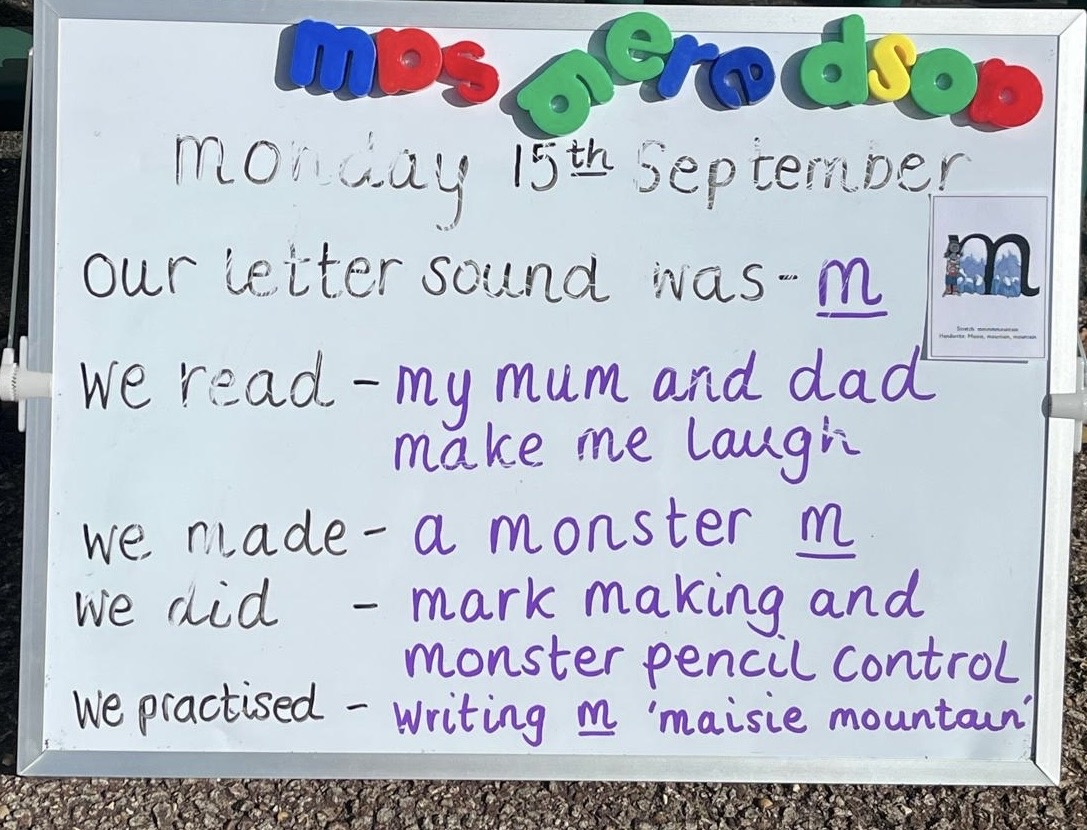 monday 15th September
our letter sound was - m
m
Stretch: mmmmmmountain
Handwrite: Maisie, mountain, mountain
we read - my mum and dad
make me laugh
we made - a monster m
we did - mark making and
monster pencil control
We practised - writing m 'maisie mountain'